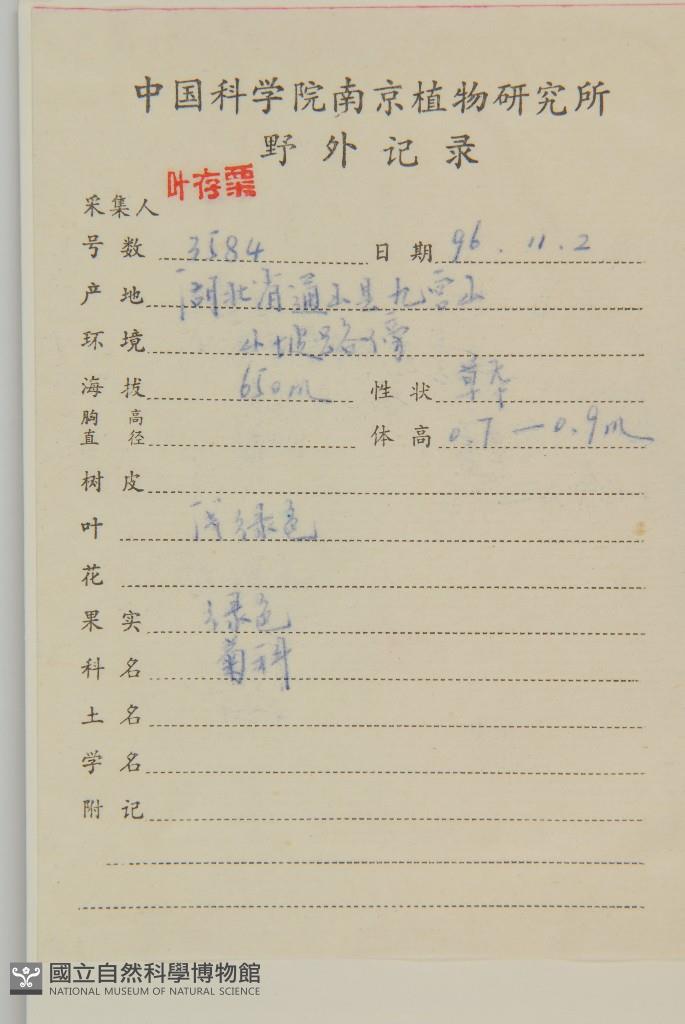 中国科学院南京植物研究所
野外记录
采集人 叶存粟
号数 3584 日期 96.11.2
产地 湖北省通山县九宫山
环境 山坡路旁
海拔 650m 性状 草本
胸高直径 体高 0.7—0.9m
树皮
叶 浅绿色
花
果实 绿色
科名 菊科
土名
学名
附记
國立自然科學博物館
NATIONAL MUSEUM OF NATURAL SCIENCE